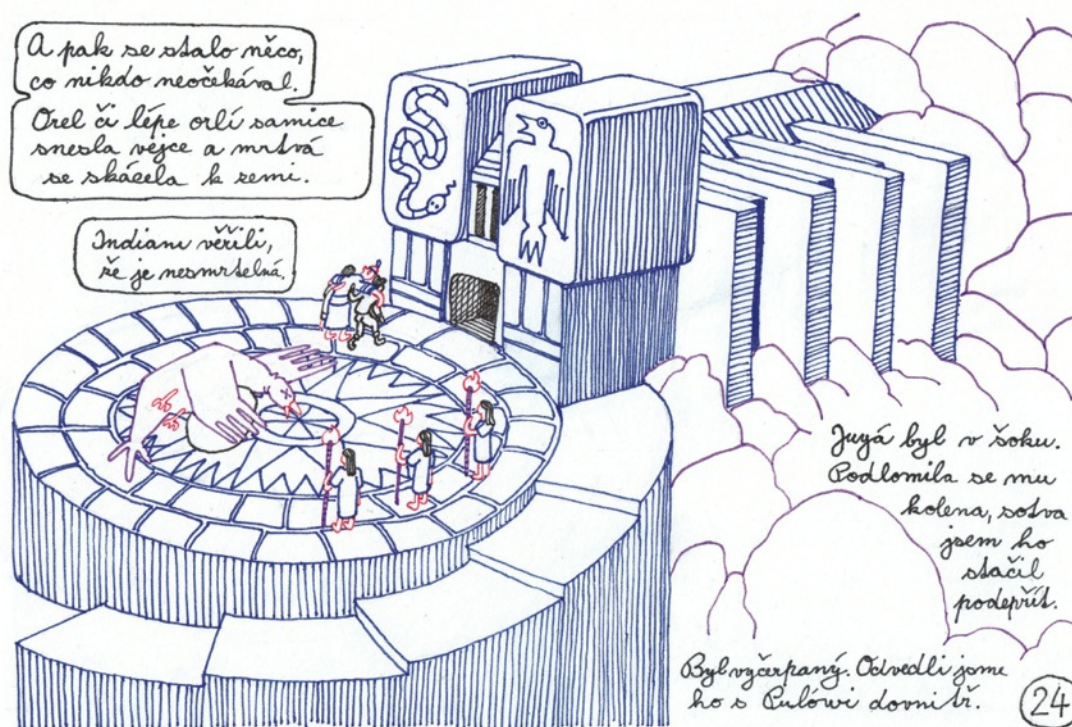 A pak se stalo něco,
co nikdo neočekával.
Orel či lépe orlí samice
snesla vejce a mrtvá
se skácela k zemi.
Indiani věřili,
že je nesmrtelná.
Jugá byl v šoku.
Podlomila se mu
kolena, sotva
jsem ho
stačil
podepřít.
Byl vyčerpaný. Odvedli jsme
ho s Pulówi dovnitř.
24